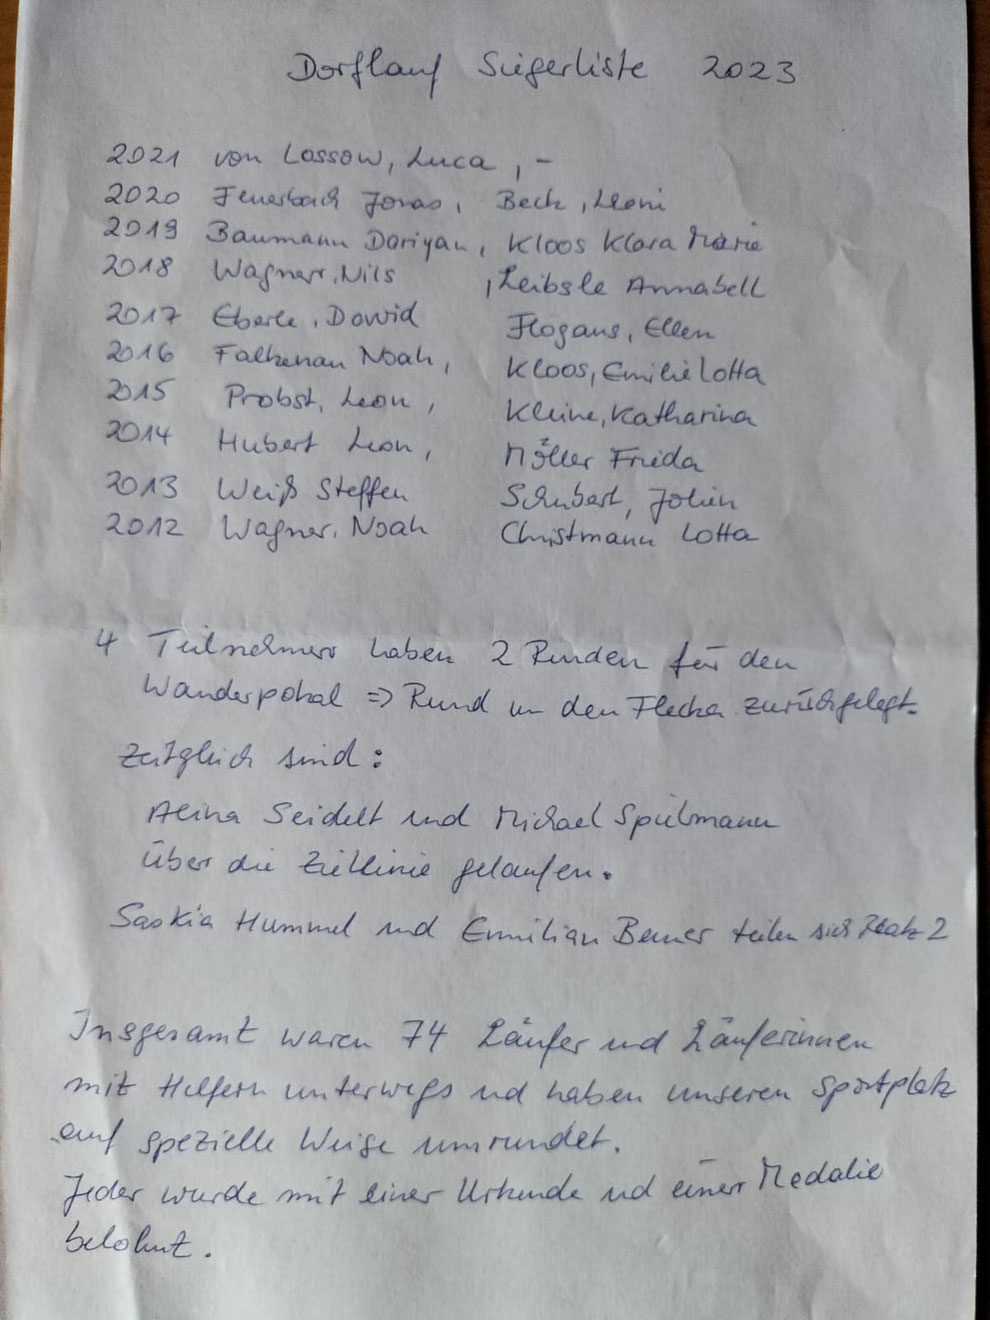 Dorflauf Siegerliste 2023
2021 von Lossow, Luca, -
2020 Feuerbach Jonas, Beck, Leoni
2019 Baumann Dariyan, Kloos Klara Marie
2018 Wagner, Nils, Leibsle Annabell
2017 Eberle, David Flogaus, Ellen
2016 Falkenau Noah, Kloos, Emilie Lotta
2015 Probst, Leon, Kleine, Katharina
2014 Hubert Leon, Möller Frieda
2013 Weiß Steffen Schubert, Jolien
2012 Wagner, Noah Christmann Lotta
4 Teilnehmer haben 2 Runden für den
Wanderpokal => Rund um den Flecka zurückgelegt.
Zeitgleich sind:
Alina Seidelt und Michael Spielmann
über die Ziellinie gelaufen.
Saskia Hummel und Emilian Berner teilen sich Platz 2
Insgesamt waren 74 Läufer und Läuferinnen
mit Helfern unterwegs und haben unseren Sportplatz
auf spezielle Weise umrundet.
Jeder wurde mit einer Urkunde und einer Medalie
belohnt.